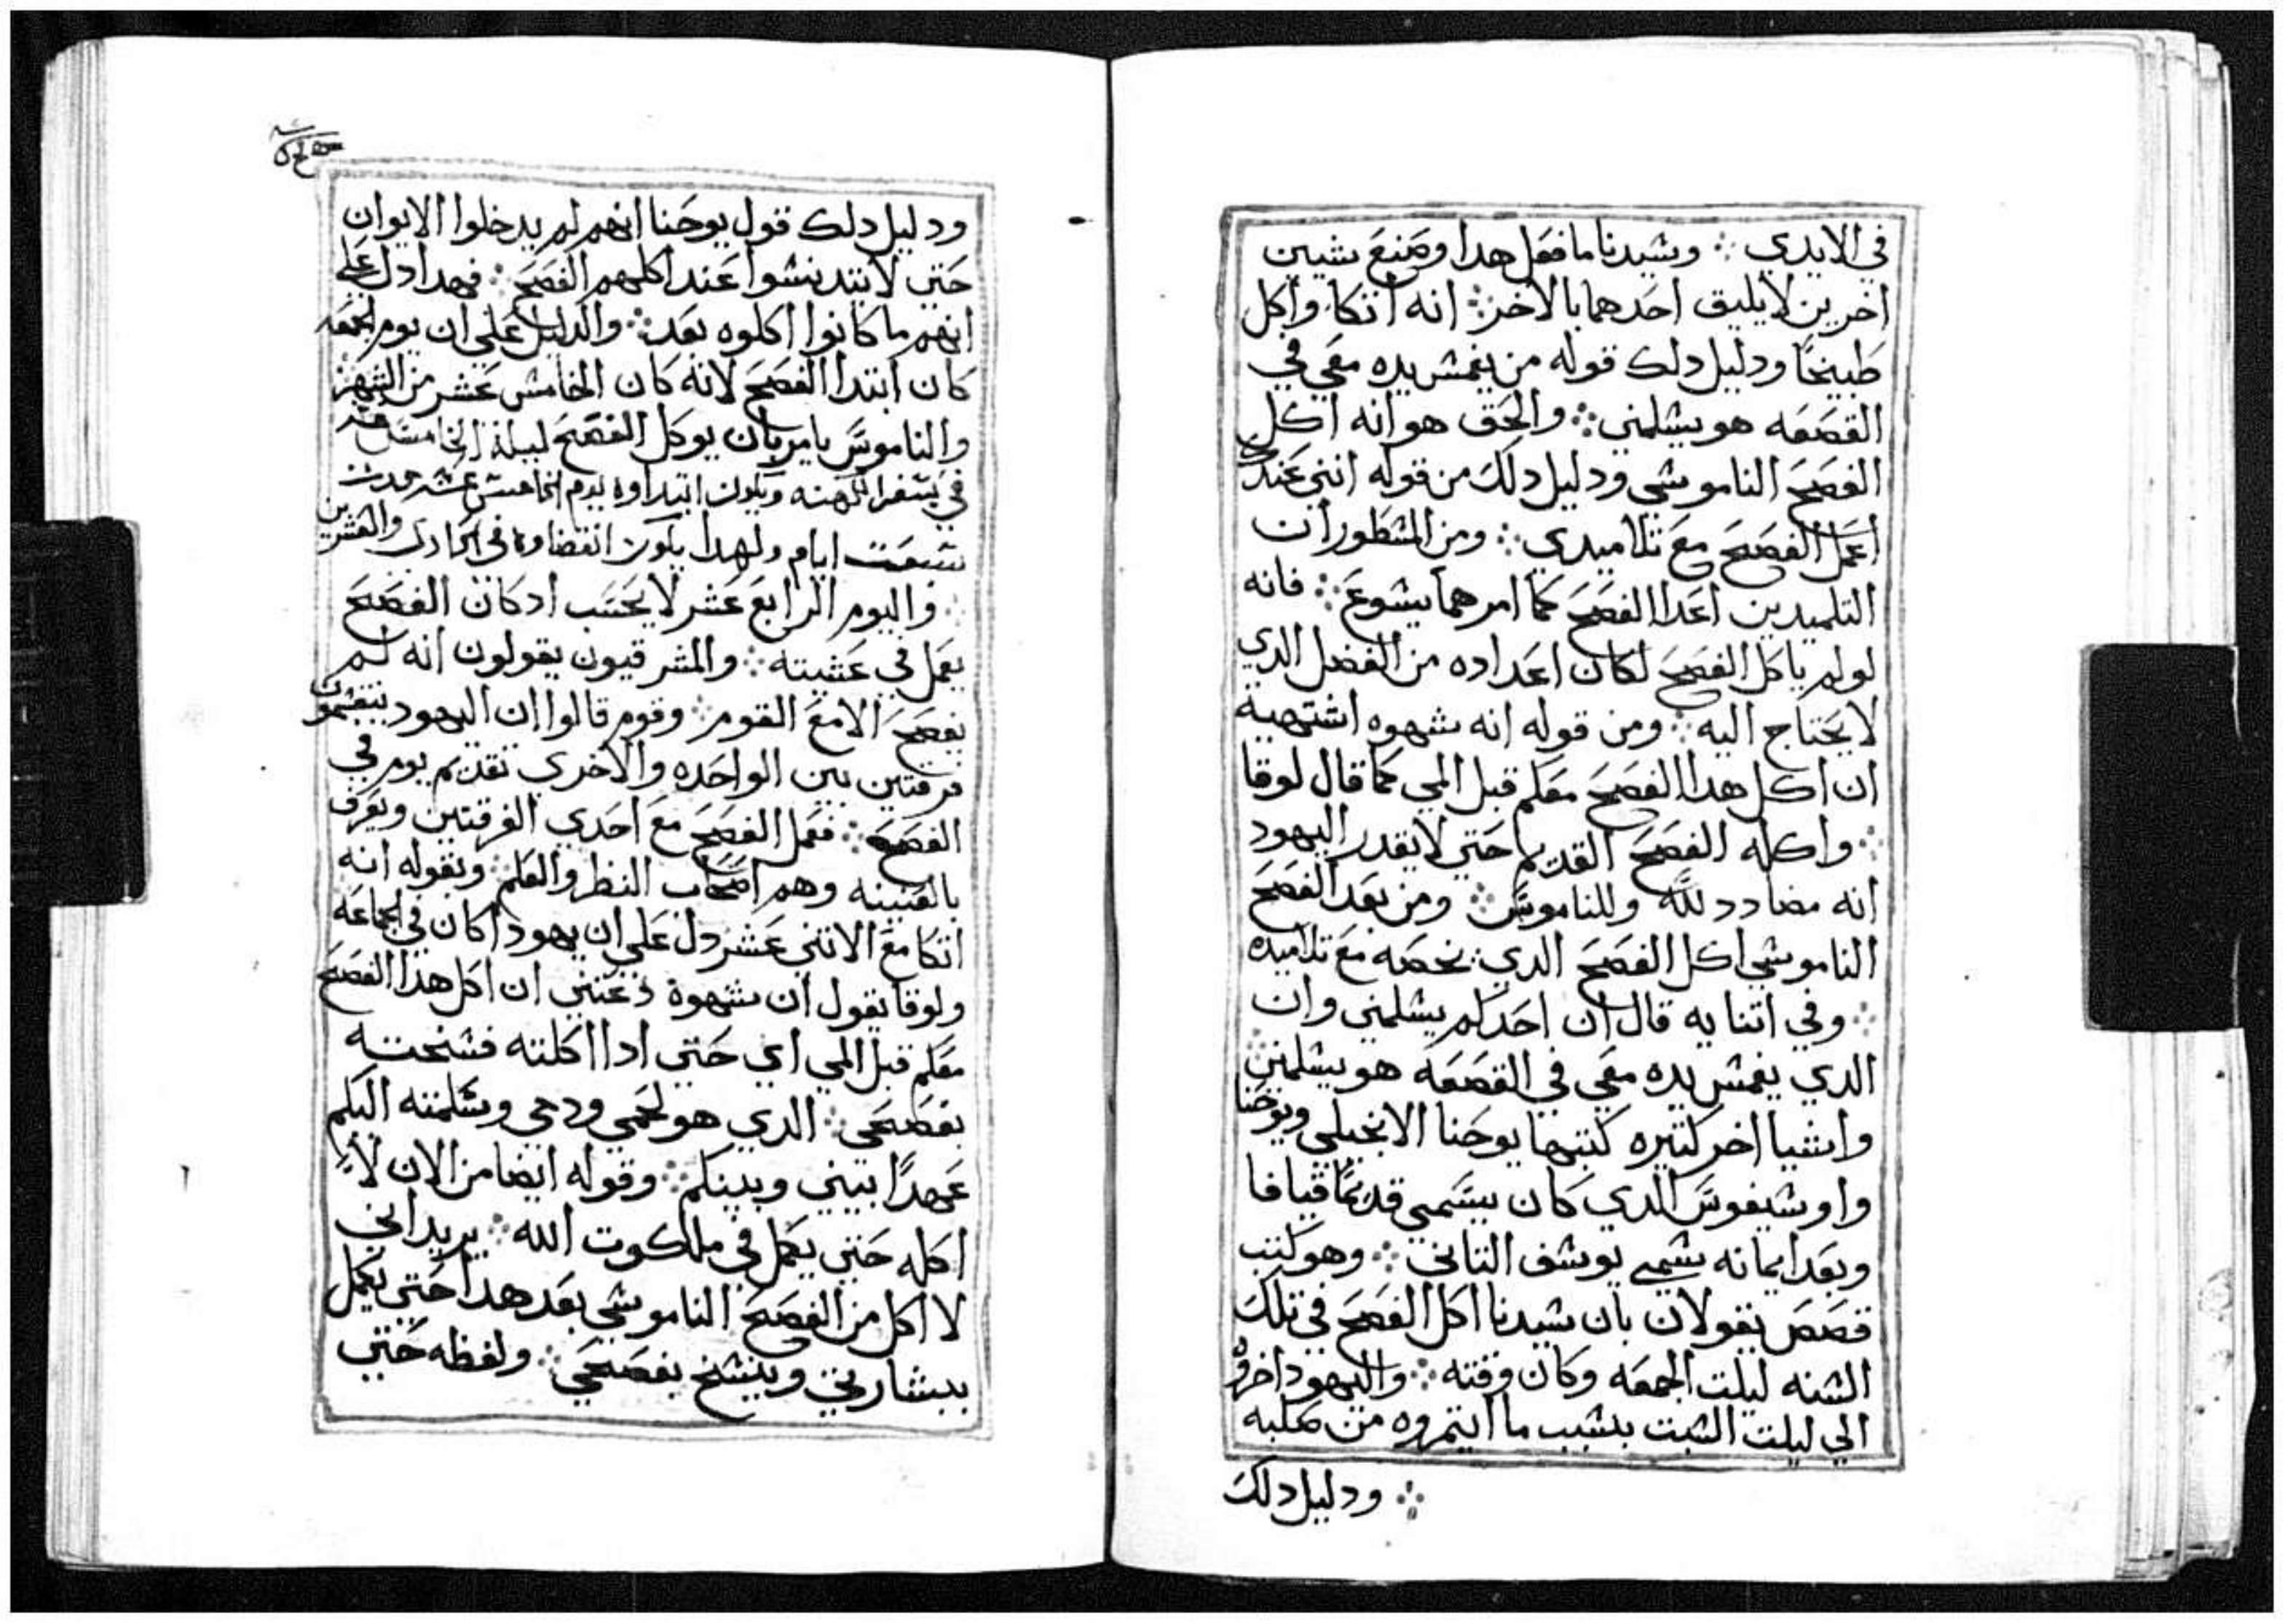 في الايدي ∴ وسيدنا ما فعل هدا وصنع شيين
اخرين لا يليق احدهما بالاخر ∴ انه اتكا واكل
طبيخًا ودليل دلك قوله من يغمس يده معي في
القصعه هو يسلمني ∴ والحق هو انه اكل
الفصح الناموسي ودليل دلك من قوله انني عندك
اعمل الفصح مع تلاميدي ∴ ومن المسطور ان
التلميدين اعدا الفصح كما امرهما يسوع ∴ فانه
لو لم ياكل الفصح لكان اعداده من الفضل الدي
لا يحتاج اليه ∴ ومن قوله انه شهوه اشتهية
ان اكل هدا الفصح معكم قبل المي كما قال لوقا
∴ واكله الفصح القديم حتي لا يقدر اليهود
انه مضادد لله وللناموس ∴ ومن بعد الفصح
الناموسي اكل الفصح الدي يخصه مع تلاميده
∴ وفي اتنايه قال ان احدكم يسلمني وان
الدي يغمس يده معي في القصعه هو يسلمني
واشيا اخر كتيره كتبها يوحنا الانجيلي ويوحنا
واوسيفوس الدي كان يسمي قديمًا قيافا
وبعد ايمانه سمي يوسف التاني ∴ وهو كتب
قصص يقولان بان سيدنا اكل الفصح في تلك
السنه ليلت الجمعه وكان وقته ∴ واليهود اخروه
الي ليلت السبت بسبب ما ايتمروه من صلبه
∴ ودليل دلك
ودليل دلك قول يوحنا انهم لم يدخلوا الايوان
حتي لا يتدنسوا عند اكلهم الفصح ∴ فهدا دل علي
انهم ما كانوا اكلوه بعد ∴ والدليل علي ان يوم الجمعه
كان ابتدا الفصح لانه كان الخامس عشر من الشهر
والناموس يامر بان يوكل الفصح ليلة الخامس عشر
في سفر الكهنه ويكون ابتداوه يوم الخامس عشر
سبعت ايام ولهدا يكون انقضاوه في الحادي والعشرين
∴ واليوم الرابع عشر لا يحتسب ادكان الفصح
يعمل في عشيته ∴ والمشرقيون يقولون انه لم
يفصح الا مع القوم ∴ وقوم قالوا ان اليهود ينقسمون
فرقتين بين الواحده والاخري تقديم يوم في
الفصح ∴ فعمل الفصح مع احدي الفرقتين ويعرف
بالعتيبنه وهم اصحاب النظر والعلم ∴ وبقوله انه
اتكا مع الاتني عشر دل علي ان يهودا كان في الجماعه
ولوقا يقول ان شهوة دعتني ان اكل هدا الفصح
معكم قبل المي اي حتي ادا اكلته فسخته
بفصحي ∴ الدي هو لحمي ودمي وسلمته اليكم
عهدًا بيني وبينكم ∴ وقوله ايضا من الان لا
اكله حتي يكمل في ملكوت الله ∴ يريد اني
لا اكل من الفصح الناموسي بعد هدا حتي يكمل
ببشارتي وينسخ بفصحي ∴ ولفظه حتي